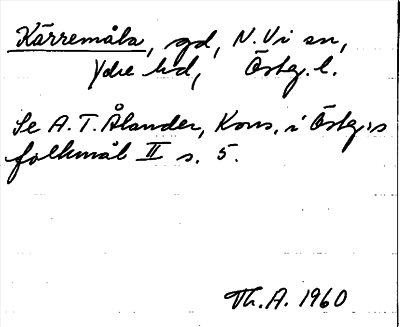 Kärremåla, gd, N. Vi sn,
Ydre hd, Östg. l.
Se A. T. Ålander, Kons. i Östg:s
folkmål II s. 5.
Th. A. 1960